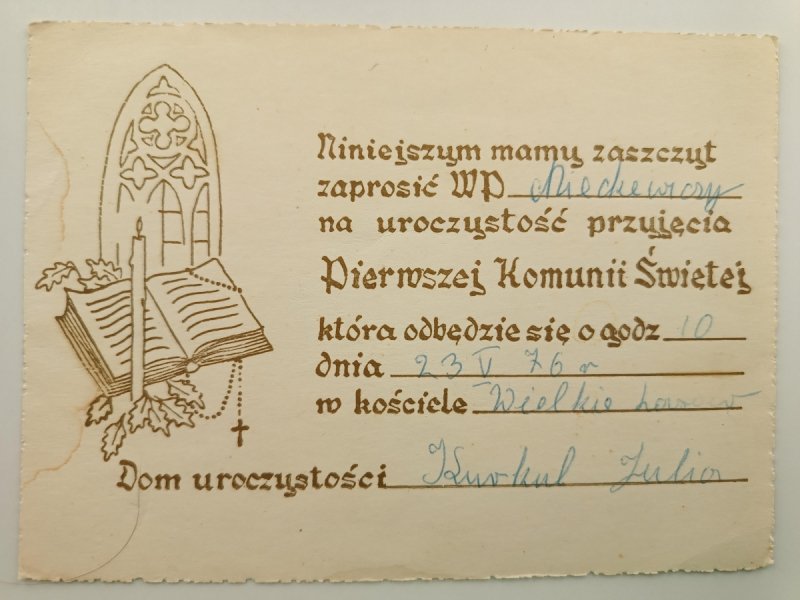 Niniejszym mamy zaszczyt
zaprosić WP
na uroczystość przyjęcia
Pierwszej Komunii Świętej
która odbędzie się o godz 10
dnia 23 V 76 r
w kościele Wielkie
Dom uroczystości Kurkul Julia